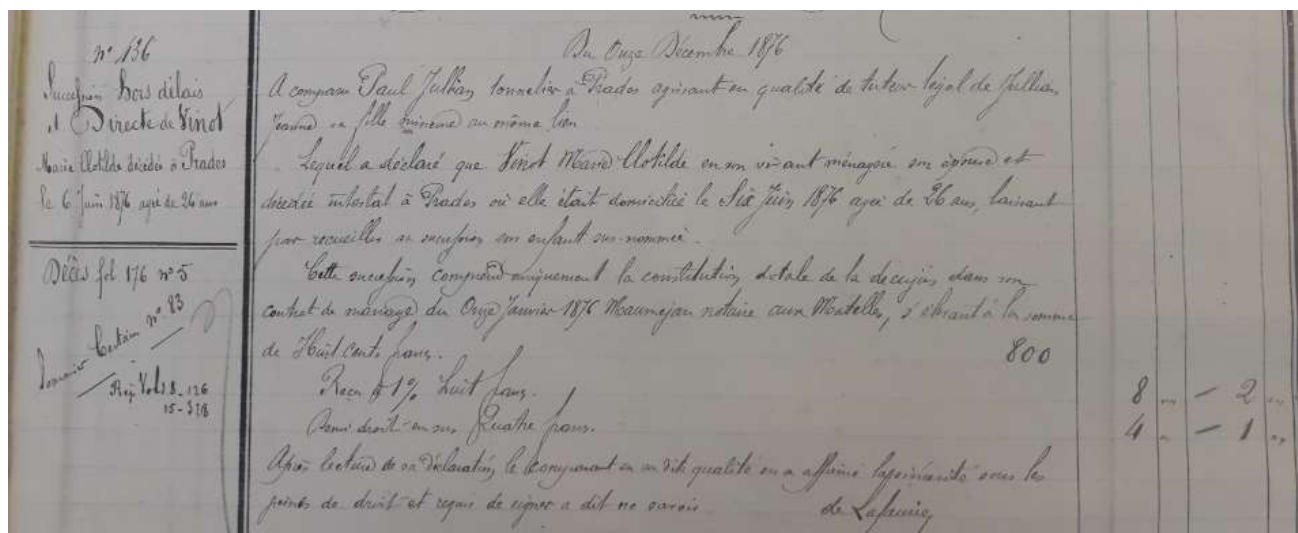 n° 136
Succession hors délais
et Directe de Vinot
Marie Clotilde décédée à Prades
le 6 Juin 1876 agée de 26 ans
Décès fol 176 n° 5
Sommier Certain n° 83
Rép. Vol. 8 - 126
15 - 378
Du Onze Décembre 1876
A comparu Paul Jullian tonnelier à Prades agissant en qualité de tuteur légal de Jullian
Jeanne sa fille mineure au même lieu
Lequel a déclaré que Vinot Marie Clotilde en son vivant ménagère son épouse est
décédée intestat à Prades où elle était domiciliée le Six Juin 1876 agée de 26 ans, laissant
pour recueillir sa succession son enfant sus-nommée.
Cette succession comprend uniquement la constitution dotale de la decujus dans son
contrat de mariage du Onze Janvier 1876 Maumejan notaire aux Matelles, s'élevant à la somme
de Huit cents francs. 800
Reçu à 1% huit francs. 8 - 2
Demi droit en sus Quatre francs. 4 - 1
Après lecture de sa déclaration le comparant en sa dite qualité en a affirmé la sincérité sous les
peines de droit et requis de signer a dit ne savoir